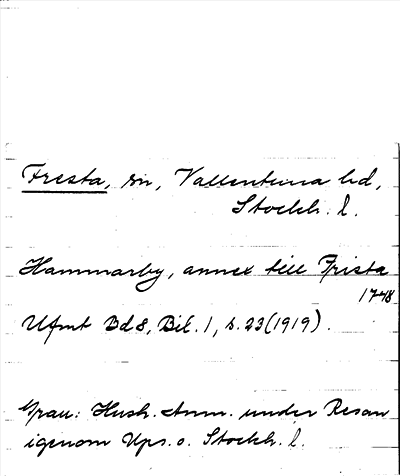 Fresta, sn, Vallentuna hd,
Stockh. l.
Hammarby, annex till Frista
1748
Ufmt Bd 8, Bil. 1, s. 23 (1919).
Grau: Hush. Anm. under Resan
igenom Ups. o. Stockh. l.